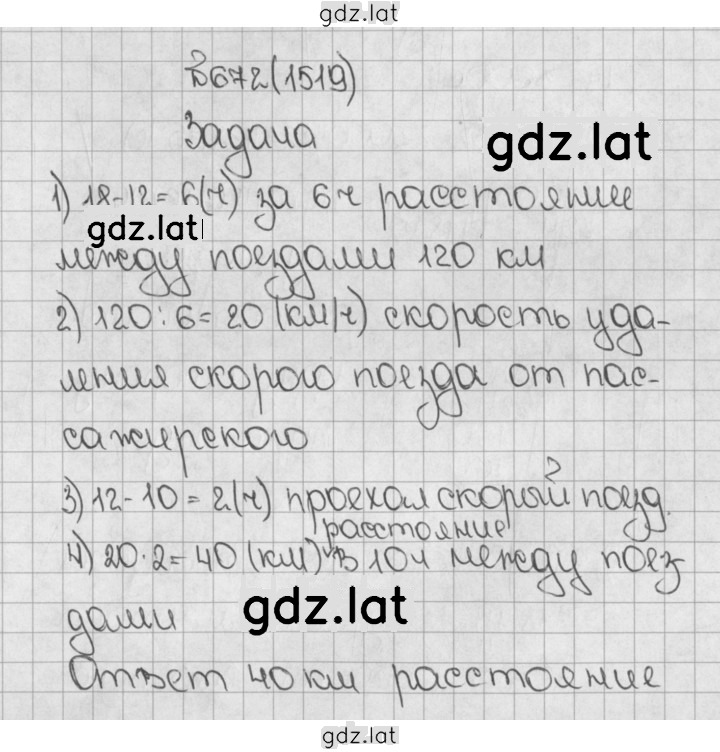 gdz.lat
В672(1519)
Задача
gdz.lat
1) 18-12=6(ч) за 6ч расстояние
gdz.lat
между поездами 120 км
2) 120:6=20(км/ч) скорость уда-
ления скорого поезда от пас-
сажирского
3) 12-10=2(ч) проехал скорый поезд.
расстояние
4) 20·2=40(км) в 10ч между поез
gdz.lat
дами
Ответ 40 км расстояние
gdz.lat